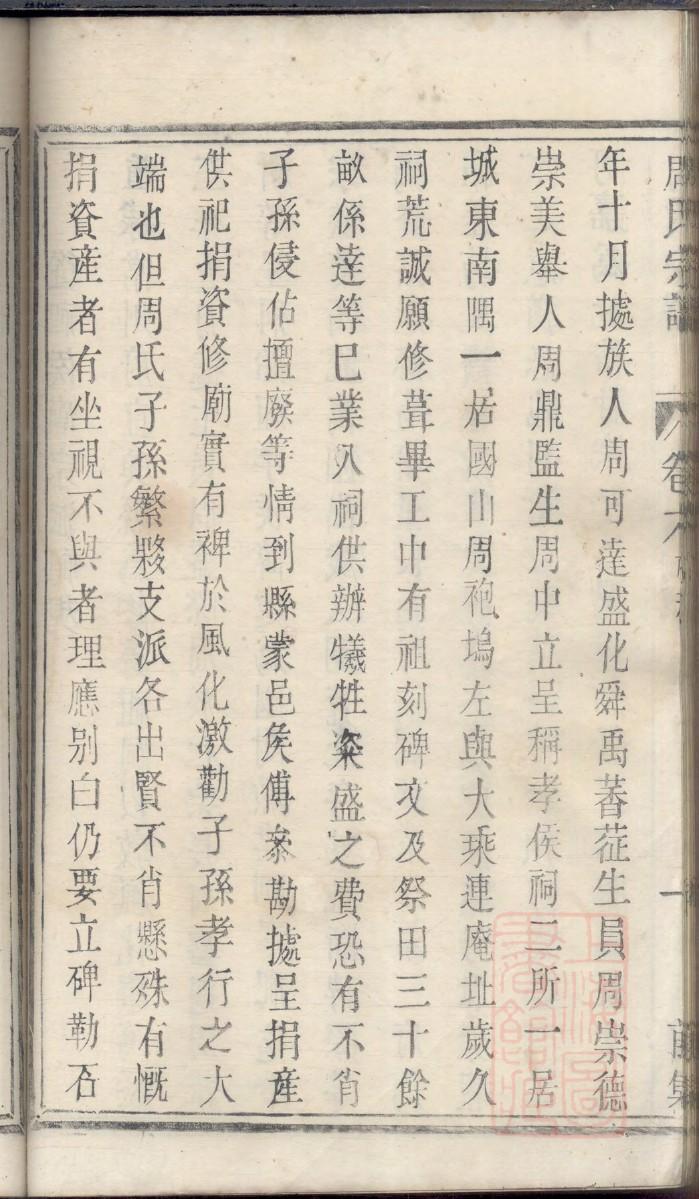 周氏宗譜 卷六 碑 一 前集
年十月據族人周可達盛化舜禹萫蒞生員周崇德
崇美舉人周鼎監生周中立呈稱孝侯祠二所一居
城東南隅一居國山周袍塢左與大乘連庵址歲久
祠荒誠願修葺畢工中有祖刻碑文及祭田三十餘
畝係達等巳業入祠供辦犧牲粢盛之費恐有不肖
子孫侵佔擅廢等情到縣蒙邑侯傅叅勘據呈捐產
供祀捐資修廟實有裨於風化激勸子孫孝行之大
端也但周氏子孫繁夥支派各出賢不肖懸殊有慨
捐資產者有坐視不與者理應别白仍要立碑勒石